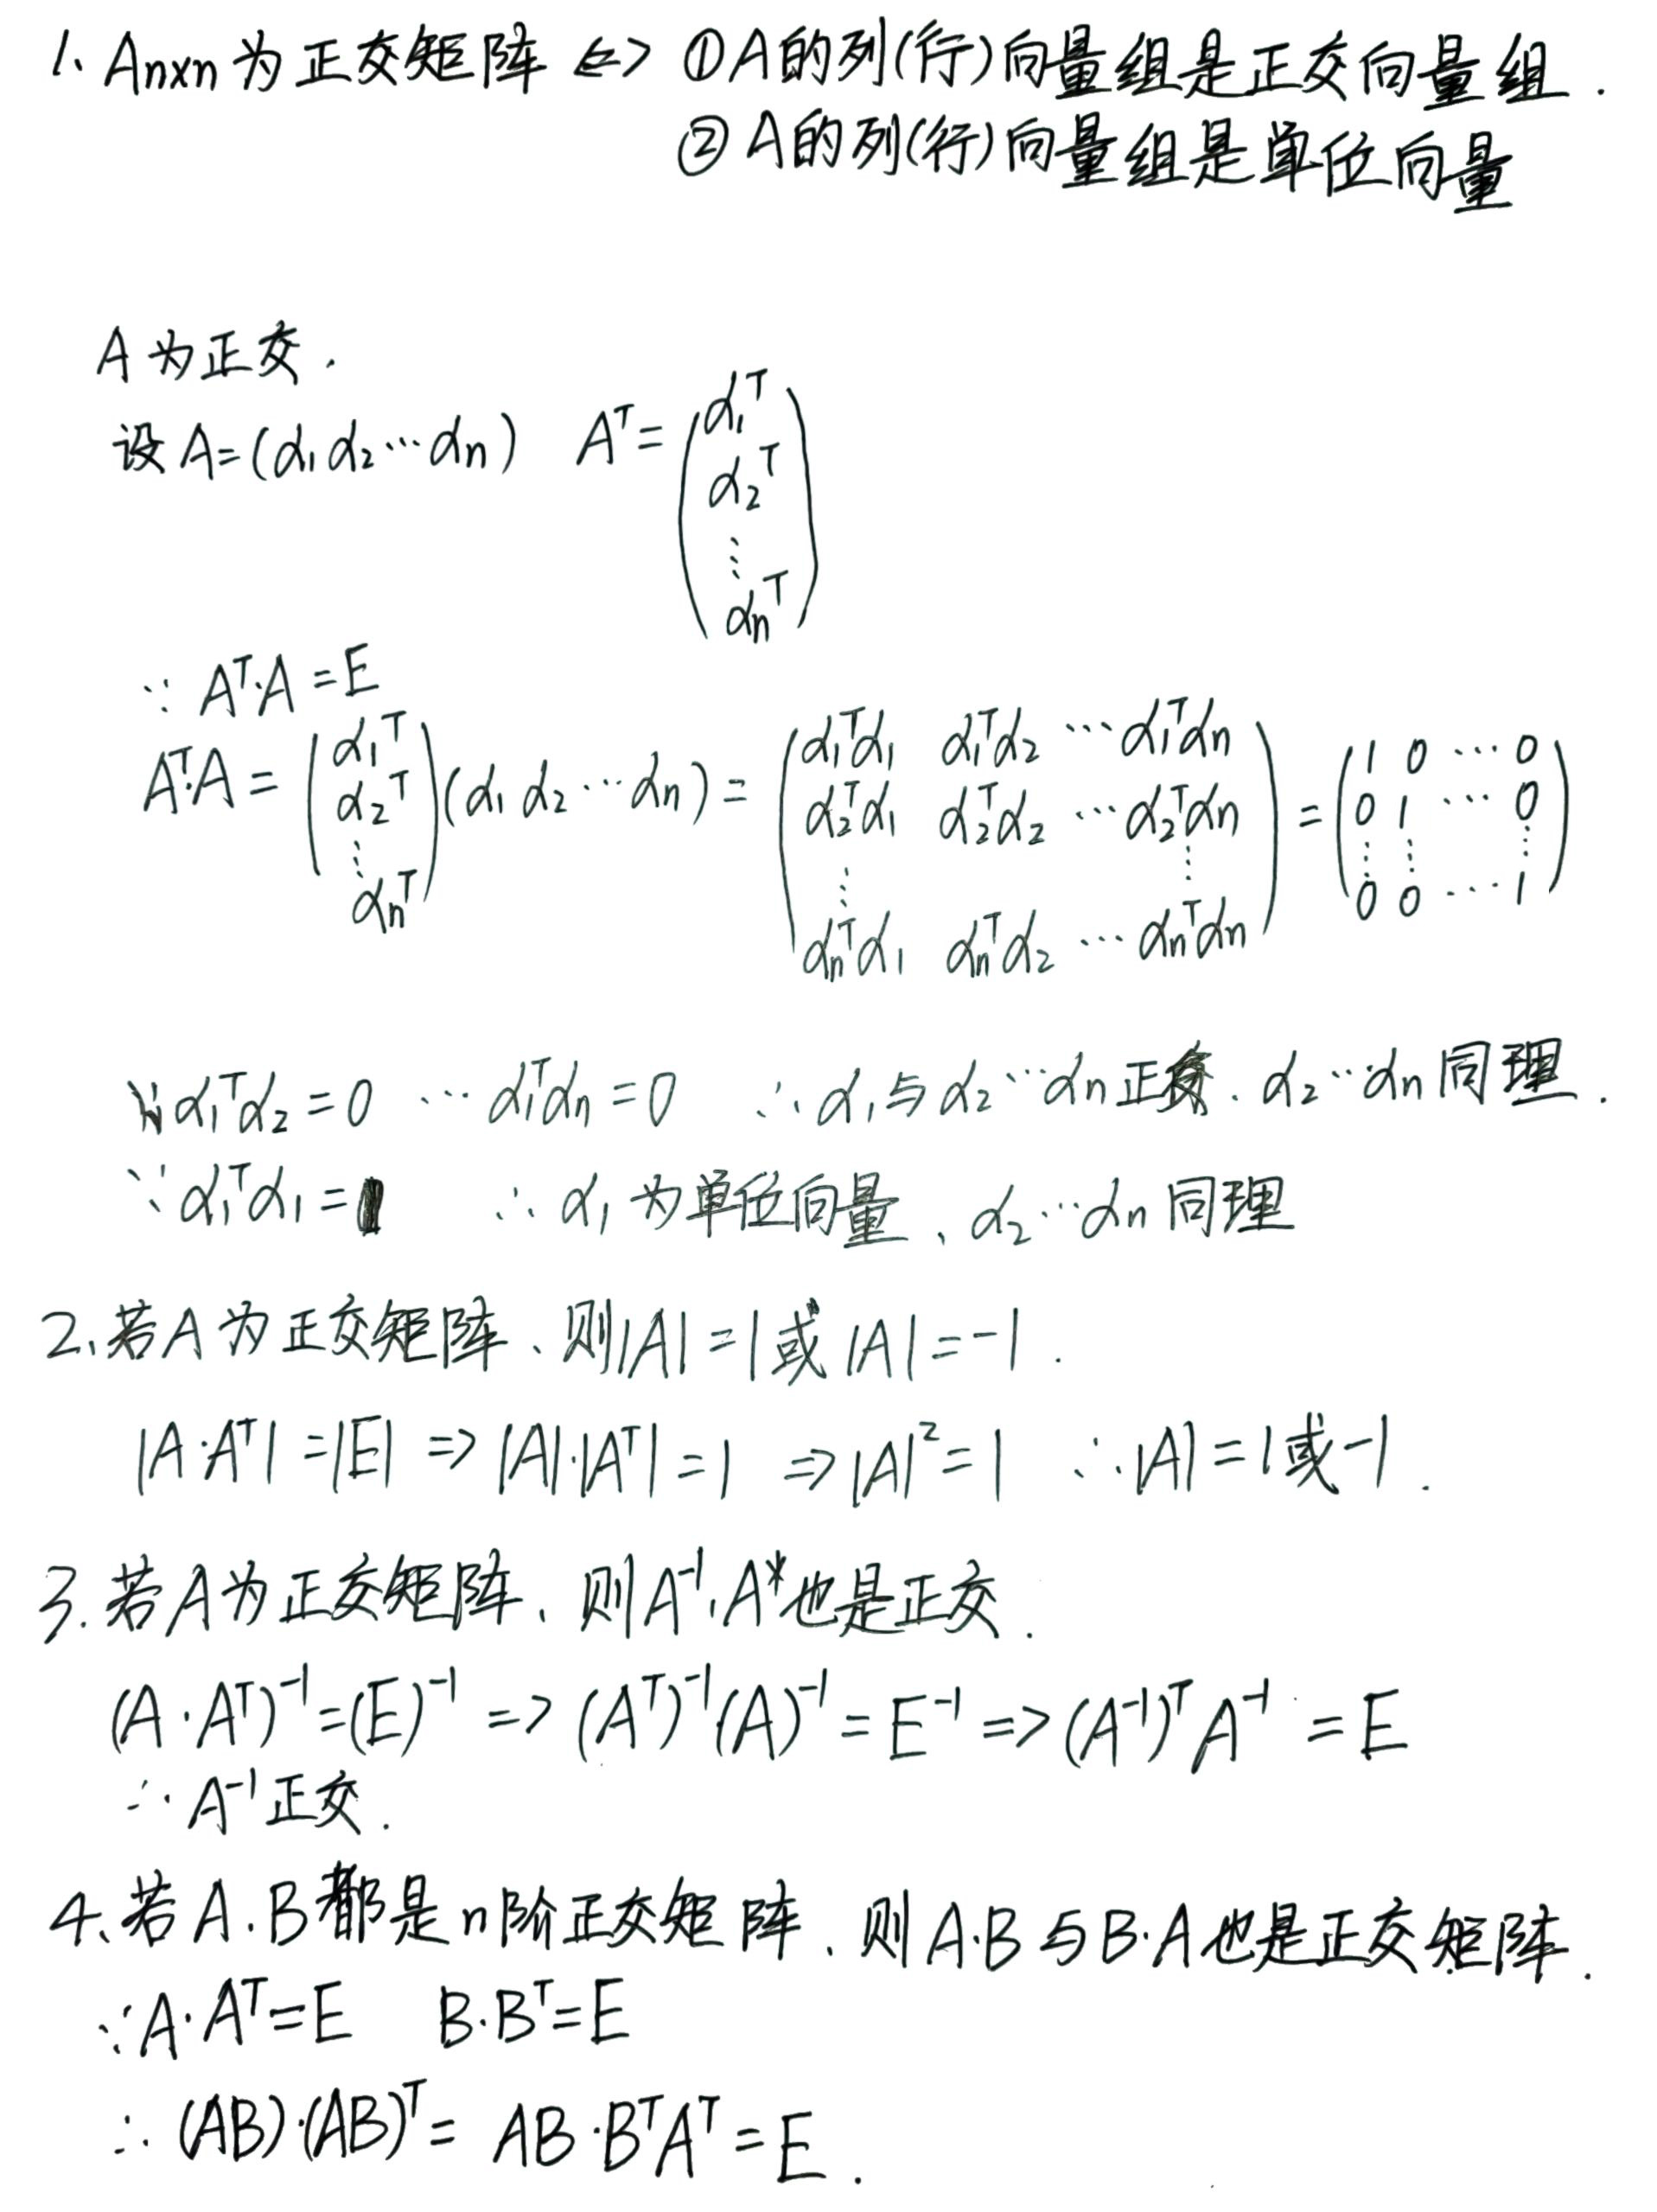 1、Anxn为正交矩阵 <=> ①A的列(行)向量组是正交向量组.
②A的列(行)向量组是单位向量
A为正交.
设A=(α₁α₂…αn) Aᵀ=(α₁ᵀ α₂ᵀ ⋮ αnᵀ)
∵ Aᵀ·A=E
Aᵀ·A=(α₁ᵀ α₂ᵀ ⋮ αnᵀ)(α₁ α₂…αn)=(α₁ᵀα₁ α₁ᵀα₂ …α₁ᵀαn α₂ᵀα₁ α₂ᵀα₂ …α₂ᵀαn ⋮ ⋮ αnᵀα₁ αnᵀα₂ …αnᵀαn)=(1 0 … 0 0 1 … 0 ⋮ ⋮ ⋮ 0 0 … 1)
∵α₁ᵀα₂=0 …α₁ᵀαn=0 ∴α₁与α₂…αn正交、α₂…αn同理.
∵α₁ᵀα₁=1 ∴α₁为单位向量、α₂…αn同理
2、若A为正交矩阵、则|A|=1或|A|=-1.
|A·Aᵀ|=|E| => |A|·|Aᵀ|=1 => |A|²=1 ∴|A|=1或-1.
3.若A为正交矩阵、则A⁻¹,A*也是正交.
(A·Aᵀ)⁻¹=(E)⁻¹ => (Aᵀ)⁻¹(A)⁻¹=E⁻¹ => (A⁻¹)ᵀA⁻¹=E
∴A⁻¹正交.
4、若A.B都是n阶正交矩阵、则A·B与B·A也是正交矩阵.
∵A·Aᵀ=E B·Bᵀ=E
∴(AB)·(AB)ᵀ=AB·BᵀAᵀ=E.